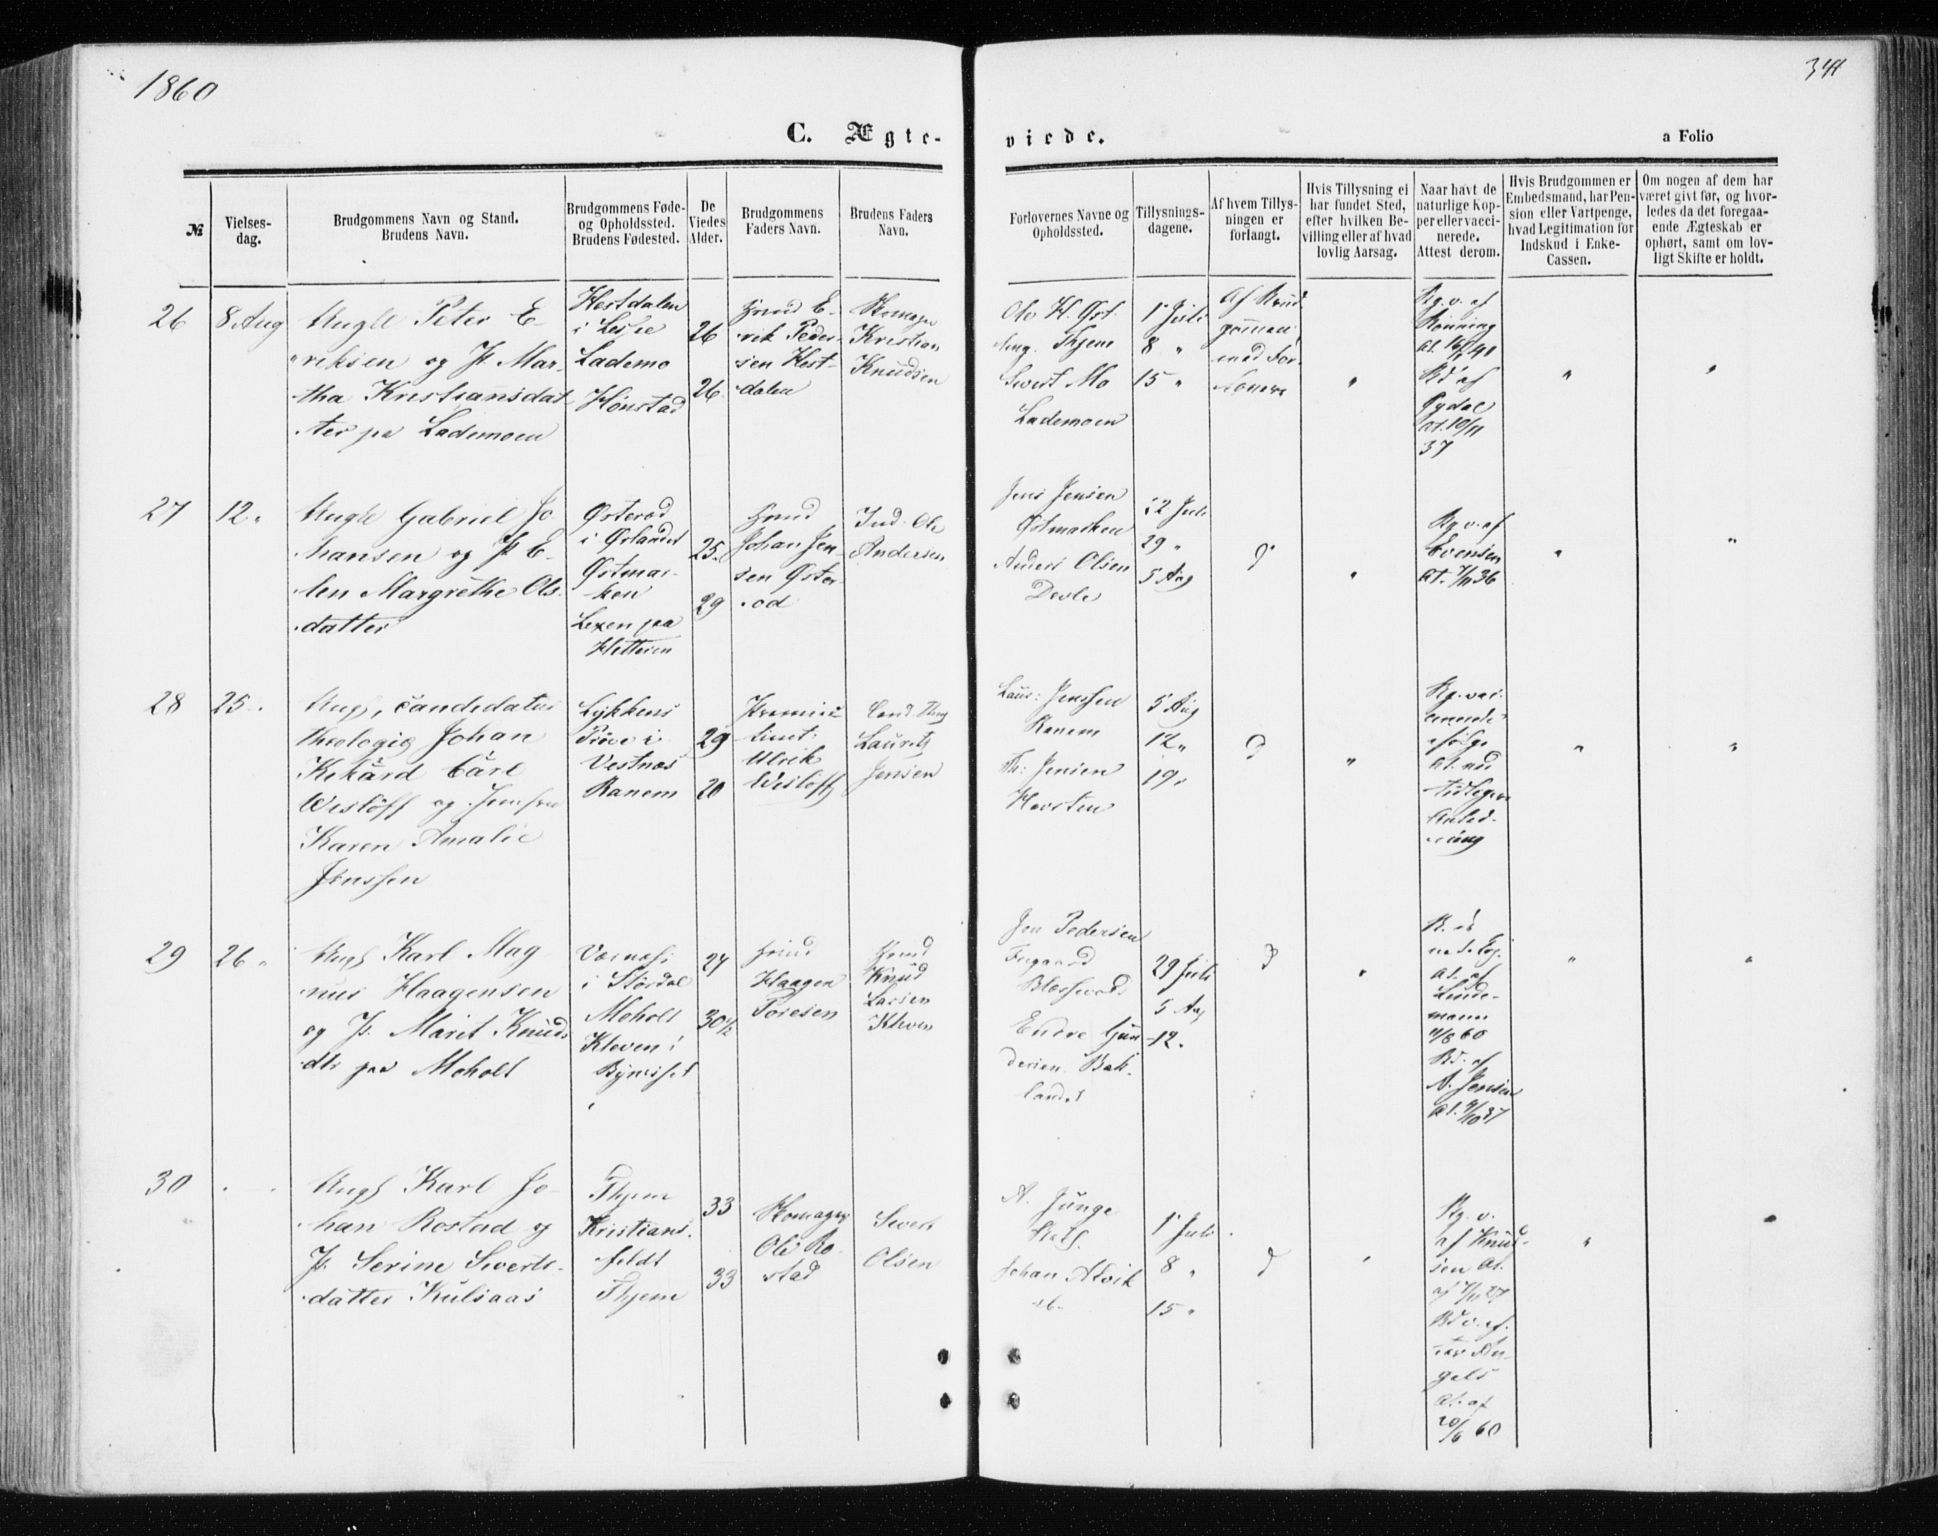 1860
341
C. Ægte-
viede.
a Folio
№
Vielses-
dag.
Brudgommens Navn og Stand.
Brudens Navn.
Brudgommens Føde-
og Opholdssted.
Brudens Fødested.
De
Viedes
Alder.
Brudgommens
Faders Navn.
Brudens Faders
Navn.
Forlovernes Navne og
Opholdssted.
Tillysnings-
dagene.
Af hvem Tillys-
ningen er
forlangt.
Hvis Tillysning ei
har fundet Sted,
efter hvilken Be-
villing eller af hvad
lovlig Aarsag.
Naar havt de
naturlige Kop-
per eller vacci-
nerede.
Attest derom.
Hvis Brudgommen er
Embedsmand, har Pen-
sion eller Vartpenge,
hvad Legitimation for
Indskud i Enke-
Cassen.
Om nogen af dem har
været givt før, og hvor-
ledes da det foregaa-
ende Ægteskab er
ophørt, samt om lov-
ligt Skifte er holdt.
26
8 Aug
Ungk Peter E-
riksen og P. Mar-
tha Kristiansdat
ter pa Lademoen
Hestdalen
i Leksv
Lademo
Hønstad
26
26
Huusd E-
rik Peder-
sen Hest-
dalen
Skomager
Kristian
Knudsen
Ole H. Øst.
Thjem
Sivert Mo
Lademoen
1 Juli
8 "
15 "
Af Brud
gommen
med For-
lovere
"
Bg. v. af
Rønning
At.
Bd af
Rydal
At. 10/11
37
"
"
27
12 "
Ungk Gabriel Jo
hansen og P. E-
len Margrethe Ols-
datter
Østeraad
i Ørlandet
Østmar-
ken
Lexen pa
Hitteren
25
29
Huusd
Johan Jen-
sen Øster-
od
Ind. Ole
Andersen
Jens Jensen
Østmarken
Anders Olsen
Devle
22 Juli
29 "
5 Aug
"
Bg. v. af
Evensen
At. 7/11 36
"
"
28
25 "
Ung, candidatus
theologie Johan
Kikård Carl
Wisløff og Jomfru
Karen Amalie
Jenssen
Lykkens
Prøve i
Vestnæs
Ranem
29
20
Ulrik
Wisløff
Cand.
Lauritz
Jensen
Laur: Jenssen
Ranem
Th: Jensen
Havsten
5 Aug
12 "
19 "
"
Bg. vac-
cinerede
ifølge
At. ved
tidligere
Anled-
ning
"
"
29
26 "
Ungk Karl Mag
nus Haagensen
og P. Marit Knuds
dtr paa Moholt
Værnæs
i Størdal
Moholt
Kleven i
Bynæset
27
30½
Huusd
Haagen
Toresen
Huusd
Knud
Larsen
Kleven
Jon Pedersen
Blæsevold
Endre Gun
dersen Bak-
landet
29 Juli
5 Aug
12 "
"
At. af
Linde-
mann
60
Bd. af
A. Jensen
At. 9/10 37
"
"
30
Ungk Karl Jo
han Rostad og
P. Serine Siverts-
datter Kulsaas
Thjem
Kristians-
feldt
Thjem
33
33
Skomager
Ole Ro-
stad
Sivert
Olsen
A. Junge
Johan Alvik
1 Juli
8 "
15 "
"
Bg. v.
af Knud-
sen At.
Bd v. af
gels
At. af
20/6 60
"